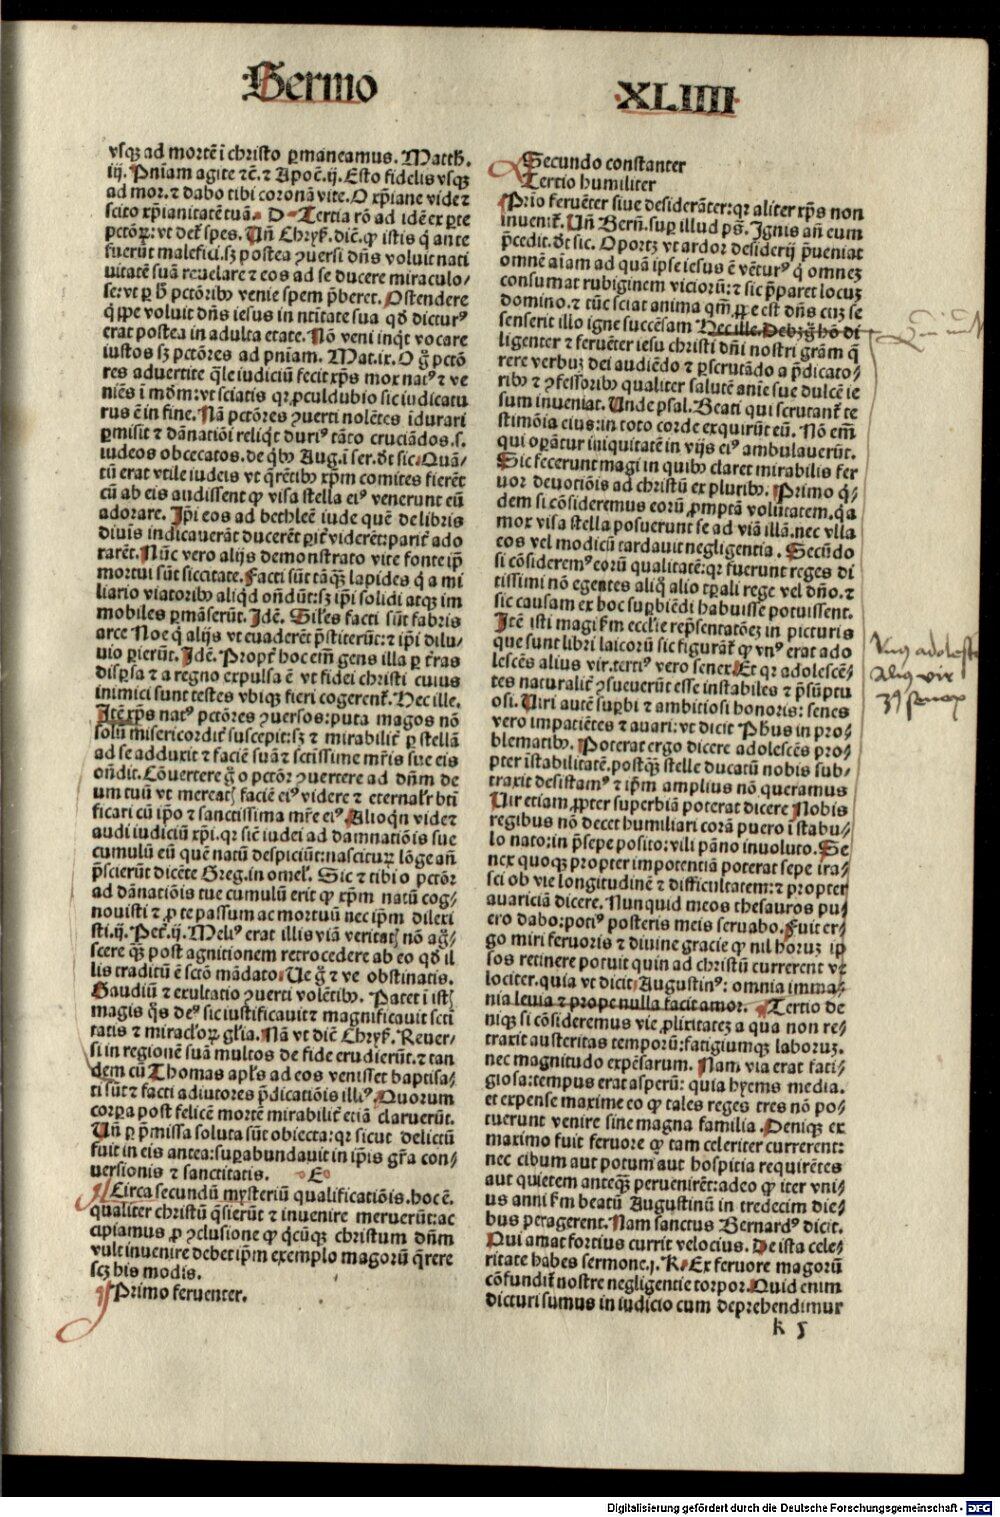 Sermo
XLIIII
vsqꝫ ad mortē ī christo ꝑmaneamus. Matth.
iij. Pn̄iam agite ⁊c̄. ⁊ Apoc̄.ij. Esto fidelis vsqꝫ
ad mor.⁊ dabo tibi coronā vite. O xp̄iane vide ⁊
scito xp̄ianitatē tuā. D Tertia rō ad idē ex ꝑte
fuerūt malefici.sꝫ postea ꝯuersi dn̄s voluit nati
uitatē suā reuelare ⁊ eos ad se ducere miraculo⸗
se: vt ꝑ venie spem p̄beret. Ostendere
voluit dn̄s iesus in
erat postea in adulta etate. Nō veni inq̇t vocare
iustos sꝫ pctōres ad pn̄iam. Mat.ix. O g̊ pctō
res aduertite q̄le iudiciū fecit xp̄s mox natꝰ ⁊ ve
niēs ī mōm: vt sciatis qꝛ ꝓculdubio sic iudicatu
rus ē in fine. Nā pctōres ꝯuerti nolētes īdurari
ꝑmisit ⁊ dānatiōi reliq̇t durꝰ tāto cruciādos.s.
iudeos obcecatos.de q̇bꝰ Aug.ī ser.dt sic. Quā⸗
tū erat vtile iudeis vt q̄rētibꝰ xp̄m comites fierēt
cū ab eis audissent ꝙ visa stella eiꝰ venerunt eū
adorare. Ip̄i eos ad bethleē iude quē de libris
diuīs indicauerāt ducerēt
rarēt. Nūc vero alijs demonstrato vite fonte ip̄i
mortui sūt siccitate. Facti sūt tāqꝫ lapides q̇ a mi
liario viatoribꝰ aliq̇d on̄dūt: sꝫ ip̄i solidi atqꝫ im
mobiles ꝑmāserūt. Idē. Siles facti sūt fabris
arce Noe q̇ alijs vt euaderēt p̄stiterūt: ⁊ ip̄i dilu⸗
uio ꝑierūt. Idē. Propt̄ hoc em̄ gens illa ꝑ t̄ras
disꝑsa ⁊ a regno expulsa ē vt fidei christi cuius
inimici sunt testes vbiqꝫ fieri cogerent̄. Hec ille.
Itē xp̄s natꝰ pctōres ꝯuersos: puta magos nō
solū misericordit̄ suscepit: sꝫ ⁊ mirabilit̄ ꝑ stellā
ad se adduxit ⁊ faciē suā ⁊ sctissime mr̄is sue eis
on̄dit. Cōuertere g̊ o pctōr ꝯuertere ad dn̄m de
um tuū vt merearꝭ faciē eiꝰ videre ⁊ eternalr bti
ficari cū ip̄o ⁊ sanctissima mr̄e eiꝰ. Alioqn̄ vide ⁊
audi iudiciū xp̄i.qꝛ sic̄ iudei ad damnatiōis sue
cumulū eū quē natū despiciūt: nasciturꝫ lōge an̄
p̄scierūt dicēte Greg.in omel. Sic ⁊ tibi o pctōr
ad dānatiōis tue cumulū erit ꝙ xp̄m natū cog⸗
nouisti ⁊ ꝓ te passum ac mortuū nec ip̄m dilexi
sti.ij. Pet̄.ij. Meliꝰ erat illis viā veritatꝭ nō ag̊⸗
scere qꝫ post agnitionem retrocedere ab eo qd̄ il
lis traditū ē sctō mādato. Ue g̊ ⁊ ve obstinatis.
Gaudiū ⁊ exultatio ꝯuerti volētibꝰ. Patet ī istꝭ
magis q̇s deꝰ sic iustificauit ⁊ magnificauit scti
tatis ⁊ miraclorꝫ gl̄ia. Nā vt dic̄ Chrys̄. Reuer⸗
si in regionē suā multos de fide erudierūt. ⁊ tan
dem cū Thomas apl̄s ad eos venisset baptisa⸗
ti sūt ⁊ facti adiutores p̄dicatiōis illiꝰ. Quorum
corꝑa post felicē mortē mirabilit̄ etiā claruerūt.
Un̄ ꝑ p̄missa soluta sūt obiecta: qꝛ sicut delictū
fuit in eis antea: suꝑabundauit in ip̄is gr̄a con⸗
uersionis ⁊ sanctitatis. E
Circa secundū mysteriū qualificatiōis.hoc ē.
qualiter christū q̄sierūt ⁊ inuenire meruerūt: ac
cipiamus ꝓ ꝯclusione ꝙ q̇cūqꝫ christum dn̄m
vult inuenire debet ip̄m exemplo magorū q̄rere
scꝫ his modis.
Primo feruenter.
Secundo constanter
Tertio humiliter
Prīo feruēter siue desiderāter: qꝛ aliter xp̄s non
inuenit̄. Un̄ Bern̄.suꝑ illud ps̄. Ignis an̄ eum
p̄cedit.dt sic. Oportꝫ vt ardor desiderij p̄ueniat
omnē aīam ad quā ipse iesus ē vētur̄ꝰ q̇ omneꝫ
consumat rubiginem viciorū: ⁊ sic p̄paret locuꝫ
domino. ⁊ tūc sciat anima qm̄ ꝓpe est dn̄s cuꝫ se
senserit illo igne succēsam Hec ille. Debꝫ g̊ hō di
ligenter ⁊ feruēter iesu christi dn̄i nostri grām q̄
rere verbuꝫ dei audiēdo ⁊ ꝑscrutādo a p̄dicato⸗
ribꝰ ⁊ ꝯfessoribꝰ qualiter salutē anīe sue dulcē ie
sum inueniat. Unde psal. Beati qui scrutant̄ te
stimōia eius: in toto corde exquirūt eū. Nō em̄
qui oꝑātur iniquitatē in vijs eiꝰ ambulauerūt.
Sic fecerunt magi in quibꝰ claret mirabilis fer
uor deuotiōis ad christū ex pluribꝰ. Primo q̇⸗
dem si cōsideremus eorū ꝓmptā volūtatem.qa
mox visa stella posuerunt se ad viā illā.nec vlla
eos vel modicū tardauit negligentia. Secūdo
si cōsideremꝰ eorū qualitatē: qꝛ fuerunt reges di
tissimi nō egentes aliq̇ alio tꝑali rege vel dn̄o. ⁊
sic causam ex hoc suꝑbiēdi habuisse potuissent.
Itē isti magi s̄m eccl̄ie rep̄sentatōeꝫ in picturis
que sunt libri laicorū sic figurāt̄ ꝙ vnꝰ erat ado
lescēs alius vir.tertiꝰ vero senex. Et qꝛ adolescē⸗
tes naturalit̄ ꝯsueuerūt esse instabiles ⁊ p̄sūptu
osi. Uiri autē suꝑbi ⁊ ambitiosi honoris: senes
vero impatiētes ⁊ auari: vt dicit Phūs in pro⸗
blematibꝰ. Poterat ergo dicere adolescēs pro⸗
pter īstabilitatē.postqꝫ stelle ducatū nobis sub⸗
traxit desistamꝰ ⁊ ip̄m amplius nō queramus
Uir etiam ꝓpter superbiā poterat dicere Nobis
regibus nō decet humiliari corā puero ī stabu⸗
lo nato: in p̄sepe posito: vili pāno inuoluto. Se
nex quoqꝫ propter impotentiā poterat sepe ira⸗
sci ob vie longitudinē ⁊ difficultatem: ⁊ propter
auariciā dicere. Nunquid meos thesauros pu⸗
ero dabo: potiꝰ posteris meis seruabo. Fuit er⸗
go miri feruoris ⁊ diuine gracie ꝙ nil horuꝫ ip
sos retinere potuit quin ad christū currerent ve
lociter.quia vt dicit Augustinꝰ: omnia imma⸗
nia leuia ⁊ prope nulla facit amor. Tertio de
niqꝫ si cōsideremus vie ꝓlixitateꝫ a qua non re⸗
traxit austeritas temporū: fatigiumqꝫ laboruꝫ.
nec magnitudo expēsarum. Nam via erat fati⸗
giosa: tempus erat asperū: quia hyems media.
et expense maxime eo ꝙ tales reges tres nō po⸗
tuerunt venire sine magna familia. Deniqꝫ ex
maximo fuit feruore ꝙ tam celeriter currerent:
nec cibum aut potum aut hospitia requirētes
aut quietem anteqꝫ peruenirēt: adeo ꝙ iter vni⸗
us anni s̄m beatū Augustinū in tredecim die⸗
bus peragerent. Nam sanctus Bernardꝰ dicit.
Qui amat fortius currit velocius. De ista cele⸗
ritate habes sermone.j. K. Ex feruore magorū
cōfundit̄ nostre negligentie torpor. Quid enim
dicturi sumus in iudicio cum deprehendimur
k 5
Unus adolesc
Alius vir
3s senex
Digitalisierung gefördert durch die Deutsche Forschungsgemeinschaft - DFG